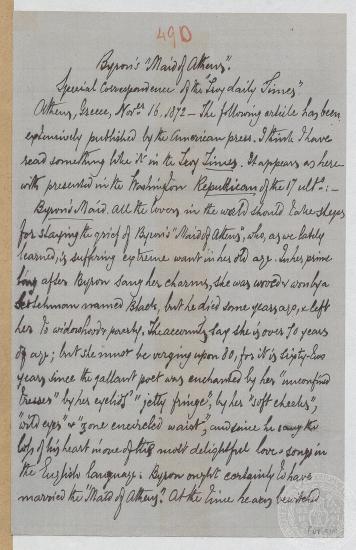 490
Byron's "Maid of Athens".
Special Correspondence of the "Troy daily Times"
Athens, Greece, Nov.er 16, 1872 — The following article has been
extensively published by the American press. I think I have
read something like it in the Troy Times. It appears as here-
with presented in the Washington Republican of the 17 ult.o: —
Byron's Maid. All the lovers in the world should take steps
for staying the grief of Byron's "Maid of Athens", who, as we lately
learned, is suffering extreme want in her old age. In her prime
long after Byron sang her charms, she was wooed & won by a
Scotchman named Black, but he died some years ago, & left
her to widowhood & poverty. The accounts say she is over 70 years
of age; but she must be verging upon 80, for it is sixty-two
years since the gallant poet was enchanted by her "unconfined
tresses" by her eyelids' "jetty fringe", by her "soft cheeks",
"wild eyes" & "zone encircled waist", and since he sang the
loss of his heart in one of the most delightful love-songs in
the English language. Byron ought certainly to have
married the "Maid of Athens". At the time he was bewitched